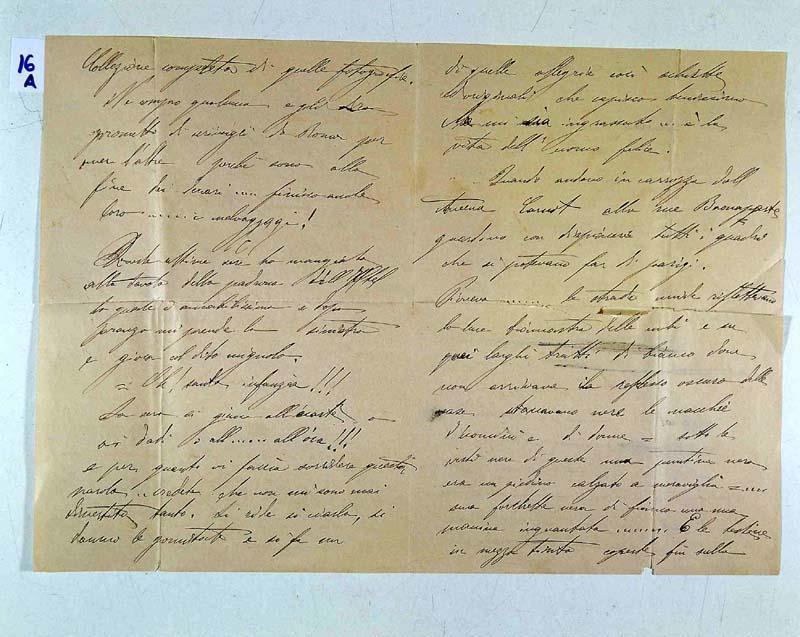 16
A
Collezione completa di quelle fotografie.
Ne compro qualcuna e gli
prometto di scrivergli da Roma per
aver l'altre perchè sono alla
fine dei lavori .... finirò anche
loro ......... i malvaggi!
Queste ultime sere ho mangiato
alla tavola della padrona dell'Hôtel
la quale è amabilissima e dopo
pranzo mi prende la sinistra
e giuoca col dito mignolo.
= Oh! santa infanzia!!!
La sera si giuoca all'écarté o
ai dadi o all'..... all'oca!!!
e per quanto vi faccia sorridere questa
parola .. credete che non mi sono mai
divertito tanto. Si ride si ciarla, si
danno le e si fa un
di quelle allegrie così schiette
ed originali che capisco benissimo
mi sia ingrassato .. è la
vita dell'uomo felice.
Quando andavo in carrozza dall'
Avenue Carnot alla rue Buonaparte
guardavo con dispiacere tutti i quadri
che si potevano far di parigi.
Pioveva ........ le strade umide riflettevano
la luce biancastra delle nubi e su
quei larghi tratti di bianco dove
non arrivava il riflesso oscuro delle
case staccavano nere le macchie
d'uomini e di donne = sotto le
vesti nere di queste una puntina nera
era un piedino calzato a meraviglia = ....
una forchetta nera di fianco una mano
manina inguantata ........ E le testine
in mezza tinta coperte fin sulla